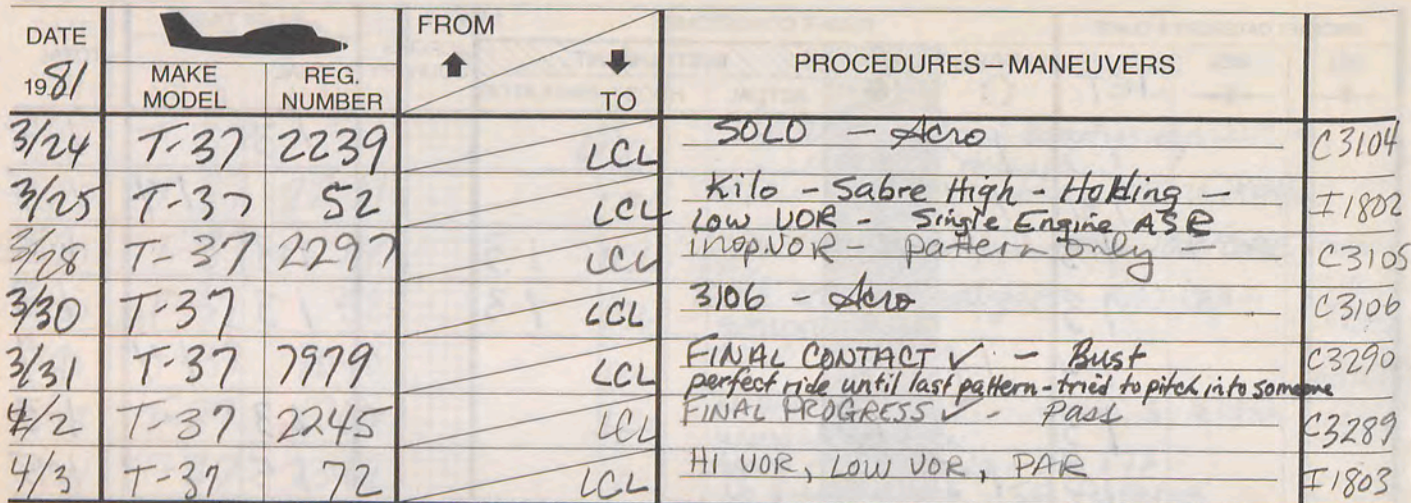 DATE FROM
1981 MAKE MODEL REG. NUMBER TO PROCEDURES–MANEUVERS
3/24 T-37 2239 LCL SOLO - Acro C3104
3/25 T-37 52 LCL Kilo - Sabre High - Holding - I1802
Low VOR - Single Engine ASR
3/28 T-37 2297 LCL inop. VOR - pattern only - C3105
3/30 T-37 LCL 3106 - Acro C3106
3/31 T-37 7979 LCL FINAL CONTACT ✓ - Bust C3290
perfect ride until last pattern - tried to pitch into someone
4/2 T-37 2245 LCL FINAL PROGRESS ✓ - Pass C3289
4/3 T-37 72 LCL HI VOR, LOW VOR, PAR I1803